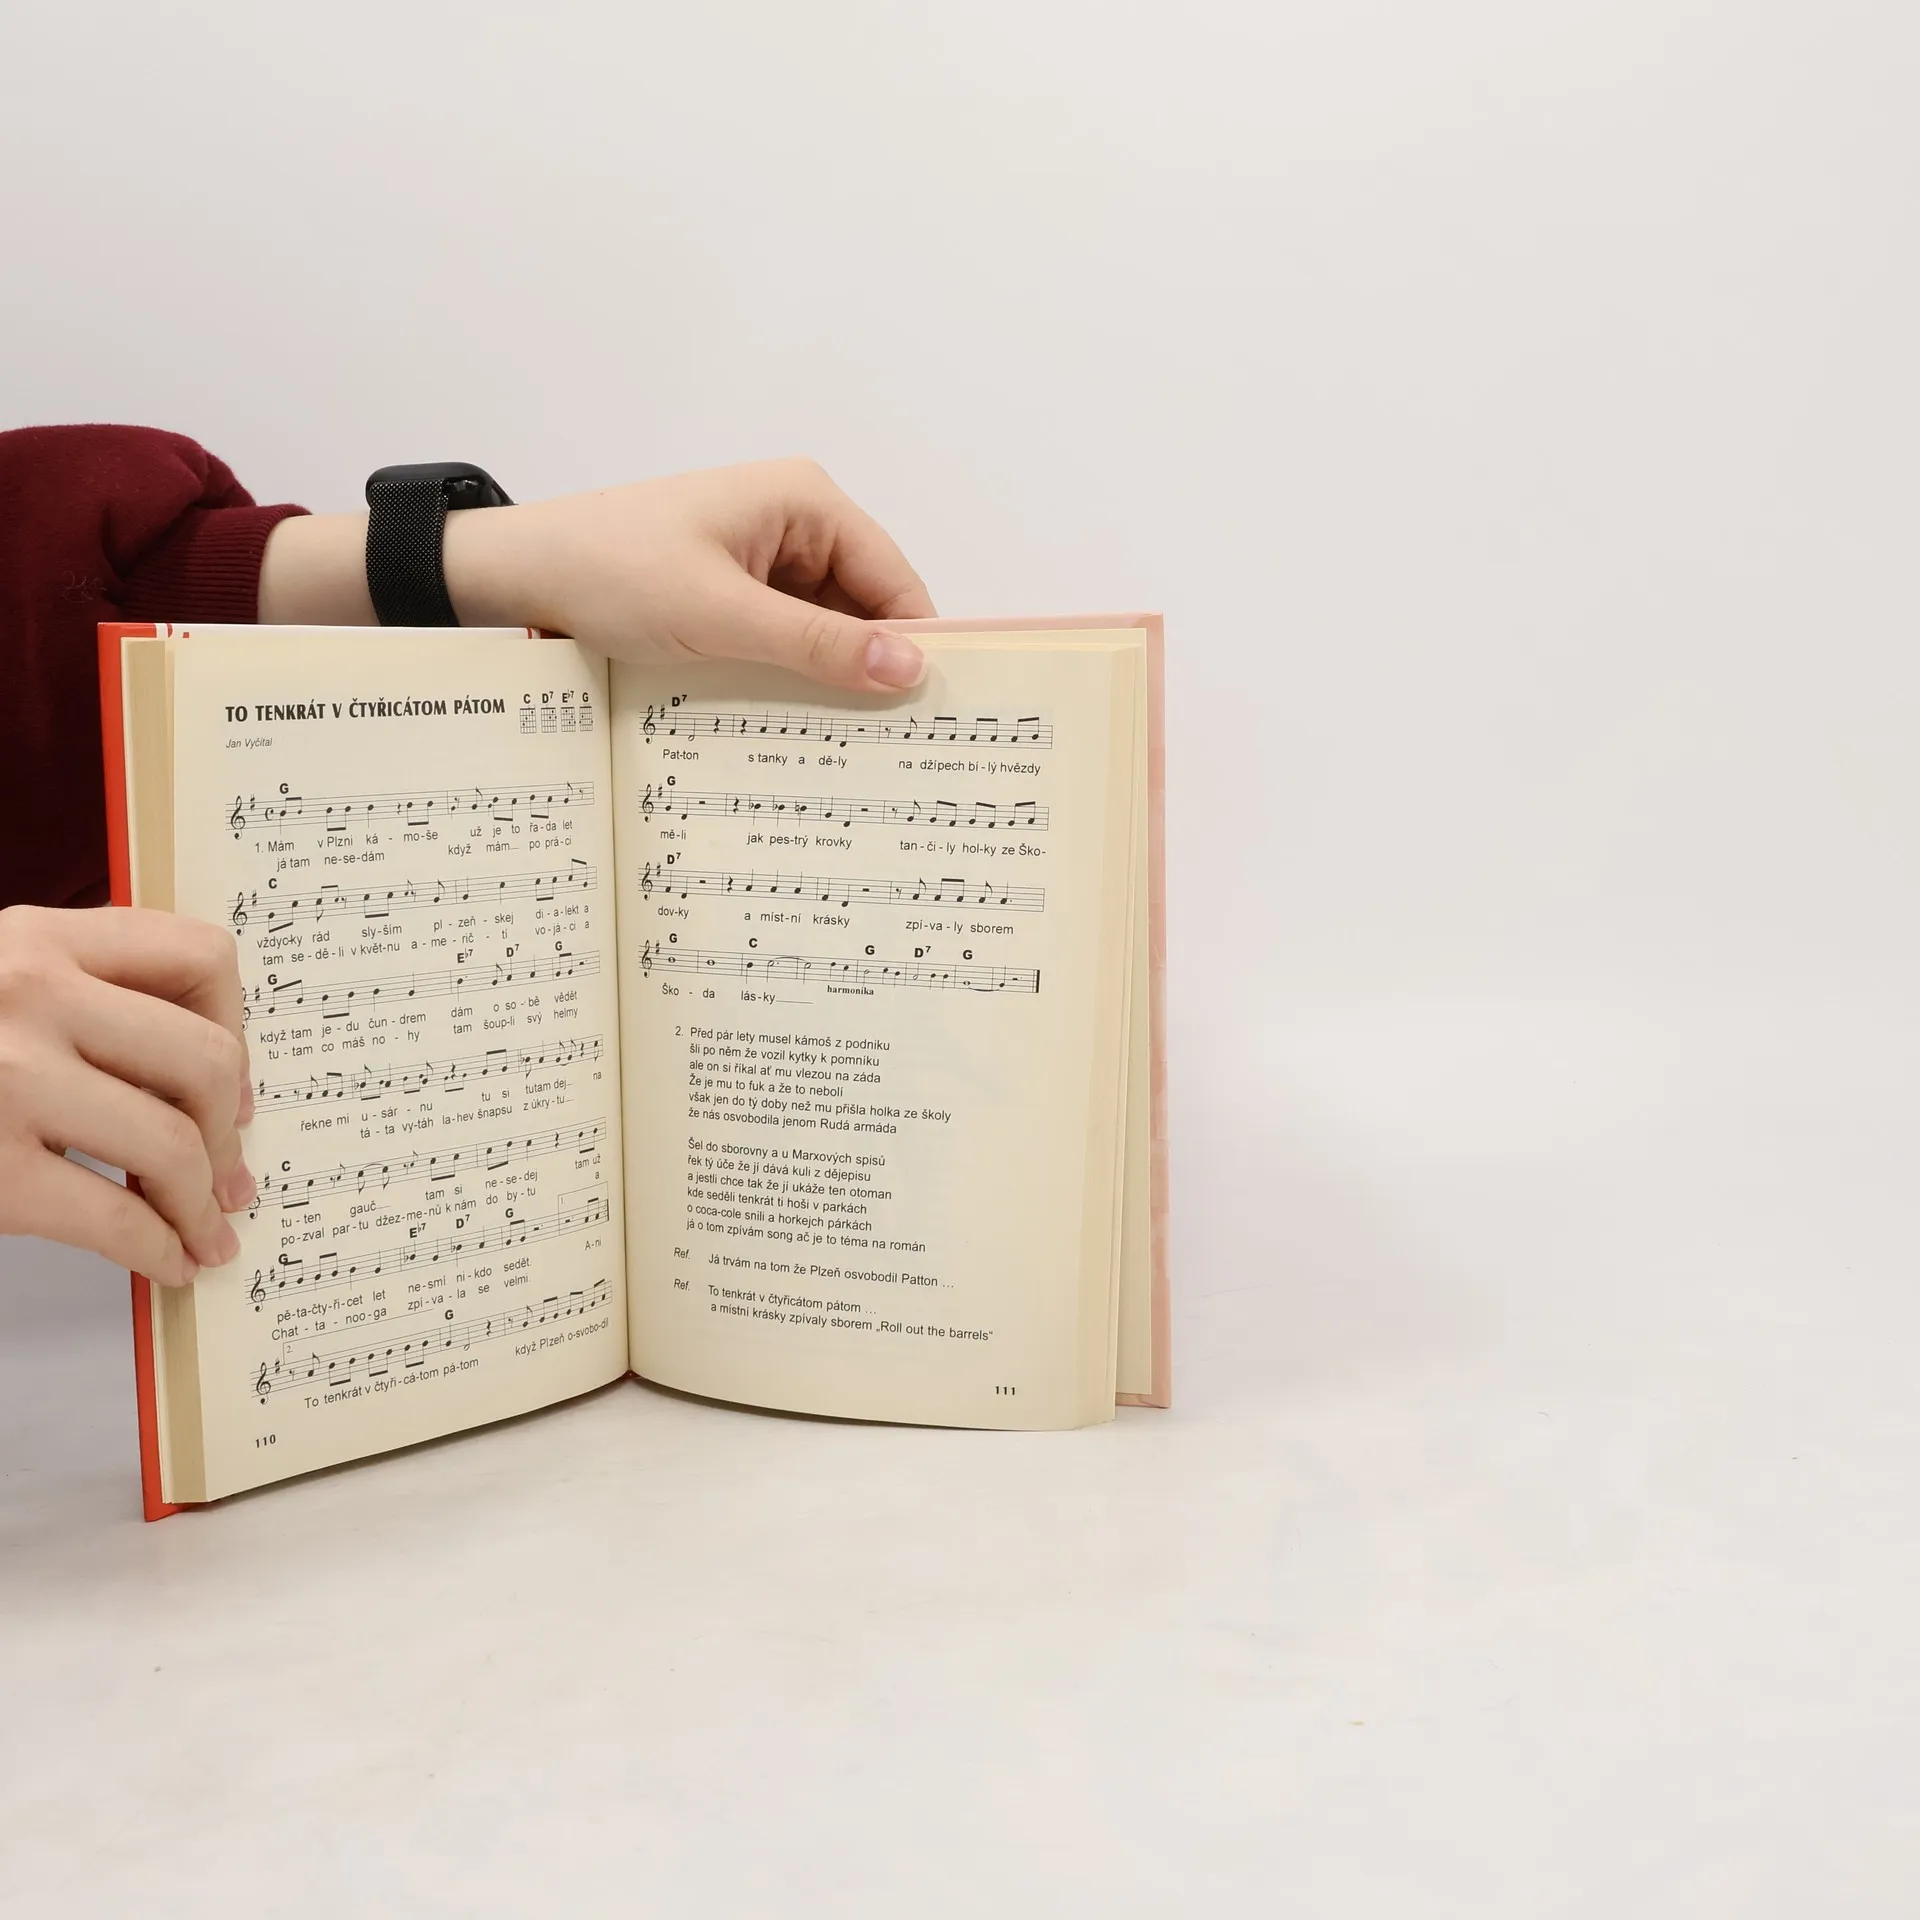 TO TENKRÁT V ČTYŘICÁTOM PÁTOM
C D7 E♭7 G
Jan Vyčítal
G
1. Mám v Plzni ká - mo-še už je to řa-da let
já tam ne-se-dám když mám po prá-ci
C
vždycky rád sly-ším pl - zeň - skej di - a - lekt a
tam se - dě - li v květ-nu a - me - rič - tí vo-já - ci a
G E♭7 D7 G
když tam je - du čun - drem dám o so - bě vědět
tu - tam co máš no - hy tam šoup-li svý helmy
řekne mi u - sár - nu tu si tutam dej na
tá - ta vy-táh la-hev šnapsu z úkry-tu
C
tu - ten gauč tam si ne-se-dej tam už
po-zval par-tu džez-me-nů k nám do by-tu a
G E♭7 D7 G
1.
pě-ta-čty-ři-cet let ne-smí ni-kdo sedět. A-ni
Chat - ta - noo-ga zpí-va-la se velmi.
G
2.
To tenkrát v čtyři-cá-tom pá-tom když Plzeň o-svobo-dil
110
D7
Pat-ton s tanky a dě-ly na džípech bí - lý hvězdy
G
mě-li jak pes-trý krovky tan - či - ly hol-ky ze Ško-
D7
dov-ky a míst-ní krásky zpí-va - ly sborem
G C G D7 G
Ško - da lás-ky
harmonika
2. Před pár lety musel kámoš z podniku
šli po něm že vozil kytky k pomníku
ale on si říkal ať mu vlezou na záda
Že je mu to fuk a že to nebolí
však jen do tý doby než mu přišla holka ze školy
že nás osvobodila jenom Rudá armáda
Šel do sborovny a u Marxových spisů
řek tý úče že jí dává kuli z dějepisu
a jestli chce tak že jí ukáže ten otoman
kde seděli tenkrát ti hoši v parkách
o coca-cole snili a horkejch párkách
já o tom zpívám song ač je to téma na román
Ref. Já trvám na tom že Plzeň osvobodil Patton ...
Ref. To tenkrát v čtyřicátom pátom ...
a místní krásky zpívaly sborem „Roll out the barrels“
111